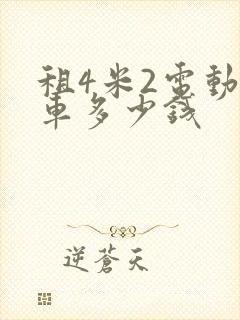 租4米2電動
車多少錢
逆蒼天